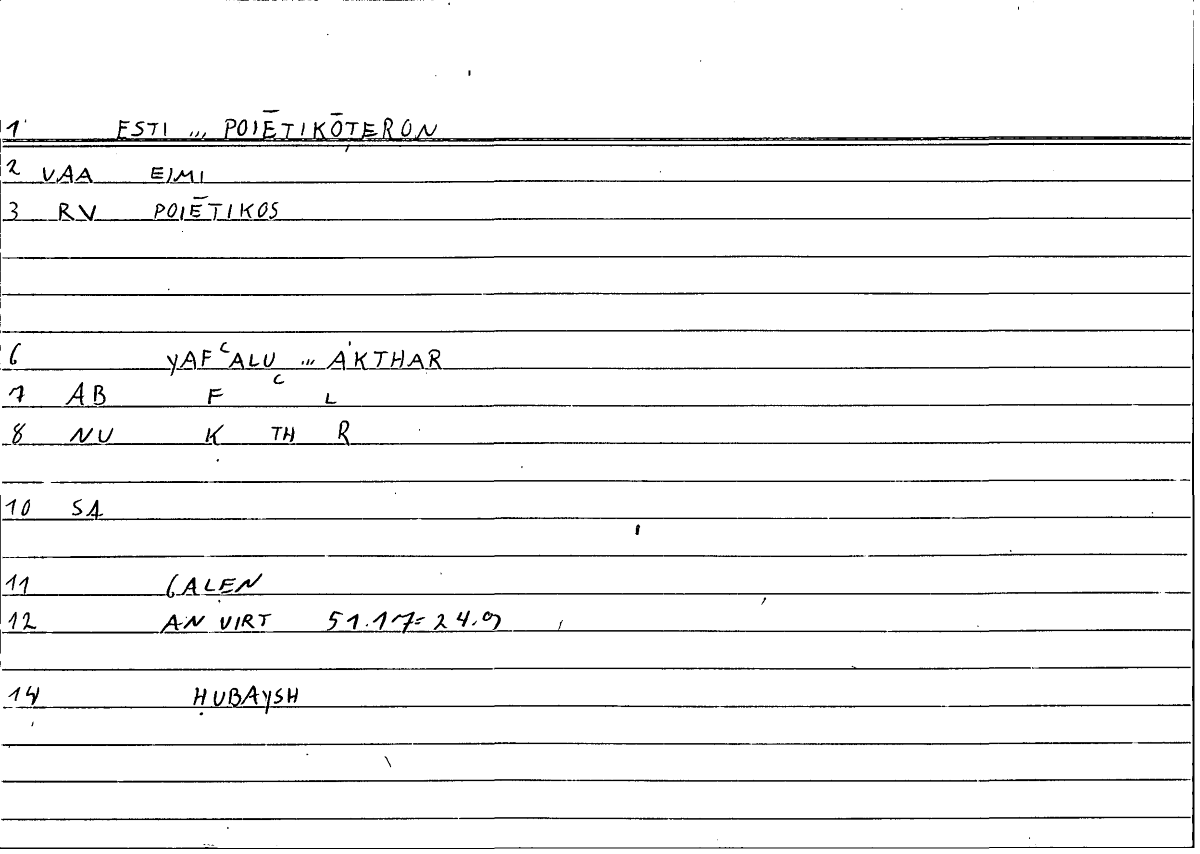 1 ESTI ... POIĒTIKŌTERON
2 VAA EIMI
3 RV POIĒTIKOS
6 YAFʿALU ... AKTHAR
7 AB F ʿ L
8 NU K TH R
10 SA
11 GALEN
12 AN VIRT 51.17=24.9
14 ḤUBAYSH